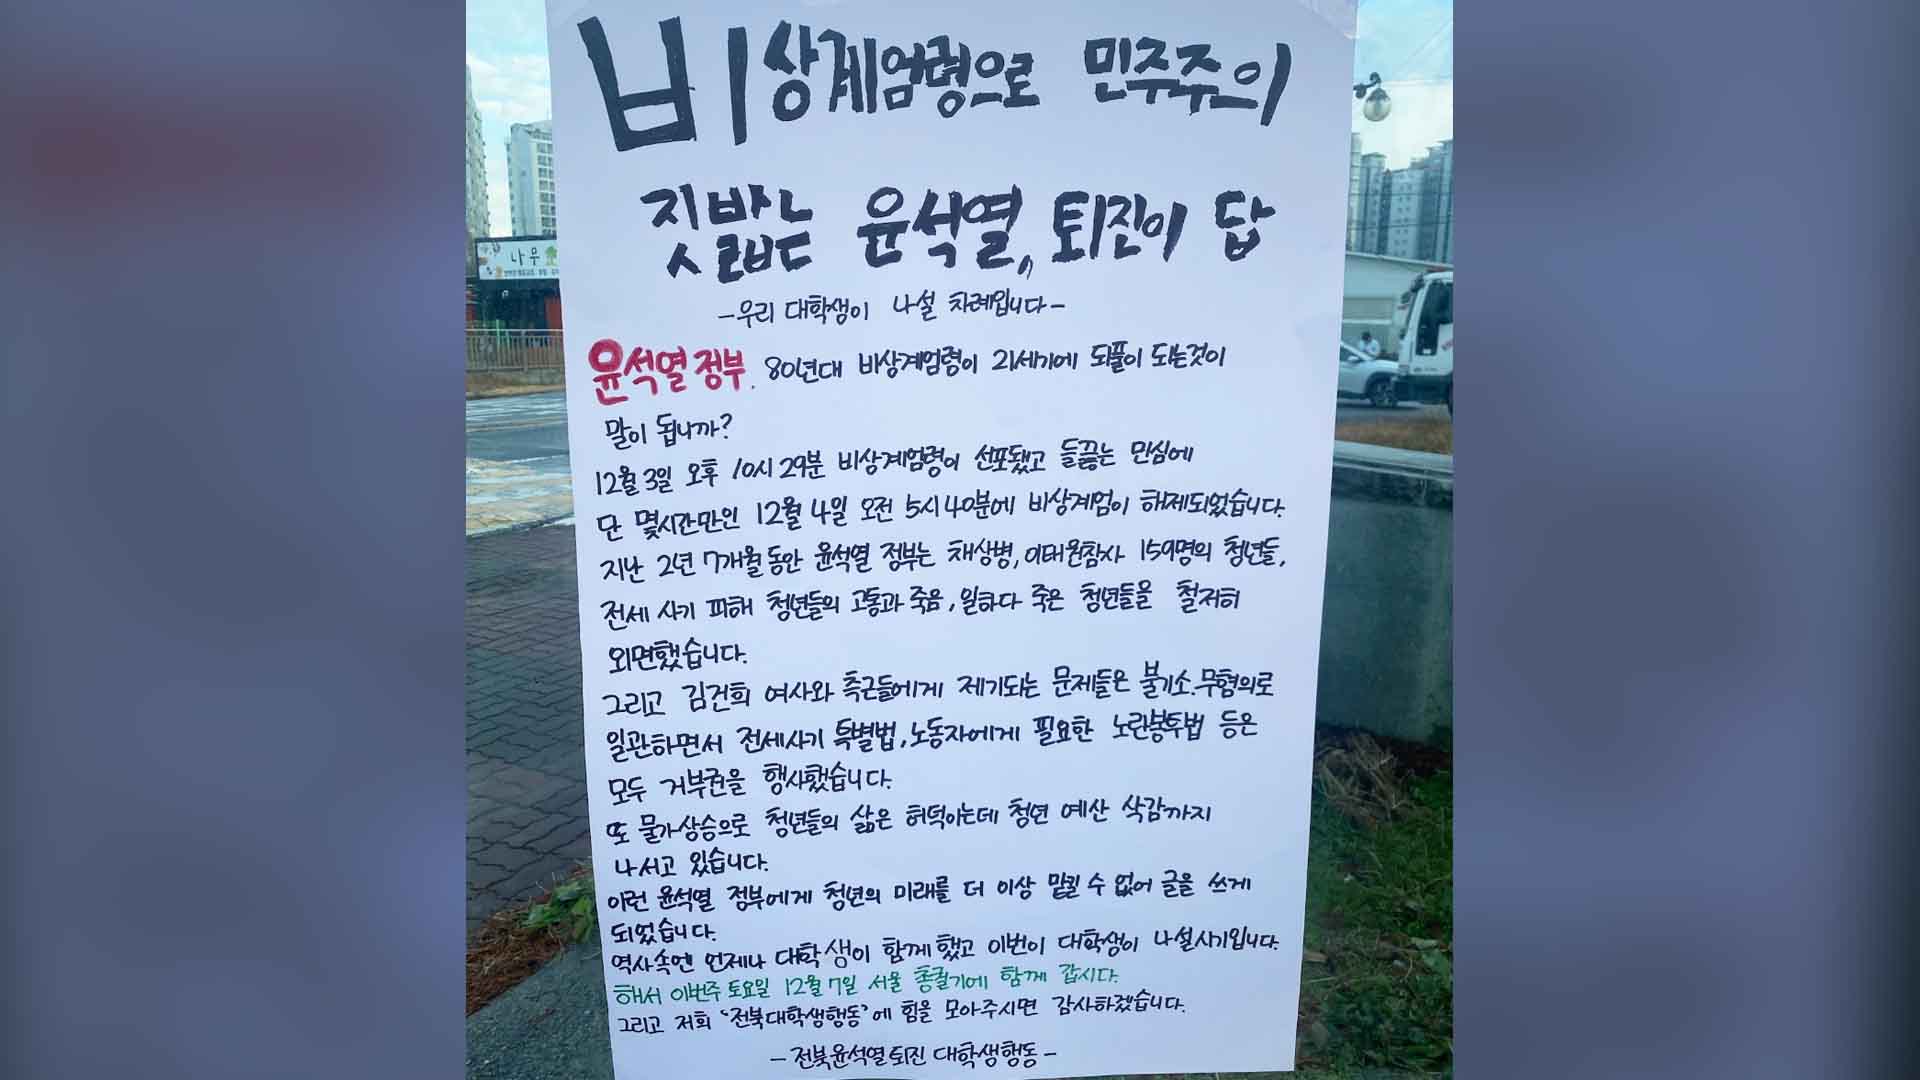 비상계엄령으로 민주주의
짓밟는 윤석열, 퇴진이 답
-우리 대학생이 나설 차례입니다-
윤석열 정부. 80년대 비상계엄령이 21세기에 되풀이 되는것이
말이 됩니까?
12월 3일 오후 10시 29분 비상계엄령이 선포됐고 들끓는 민심에
단 몇시간만인 12월 4일 오전 5시 40분에 비상계엄이 해제되었습니다.
지난 2년 7개월 동안 윤석열 정부는 채상병, 이태원참사 159명의 청년들,
전세 사기 피해 청년들의 고통과 죽음, 일하다 죽은 청년들을 철저히
외면했습니다.
그리고 김건희 여사와 측근들에게 제기되는 문제들은 불기소.무혐의로
일관하면서 전세사기 특별법, 노동자에게 필요한 노란봉투법 등은
모두 거부권을 행사했습니다.
또 물가상승으로 청년들의 삶은 허덕이는데 청년 예산 삭감까지
나서고 있습니다.
이런 윤석열 정부에게 청년의 미래를 더 이상 맡킬 수 없어 글을 쓰게
되었습니다.
역사속엔 언제나 대학생이 함께 했고 이번이 대학생이 나설시기입니다.
해서 이번주 토요일 12월 7일 서울 총궐기에 함께 갑시다.
그리고 저희 '전북대학생행동'에 힘을 모아주시면 감사하겠습니다.
-전북윤석열퇴진 대학생행동-
나무